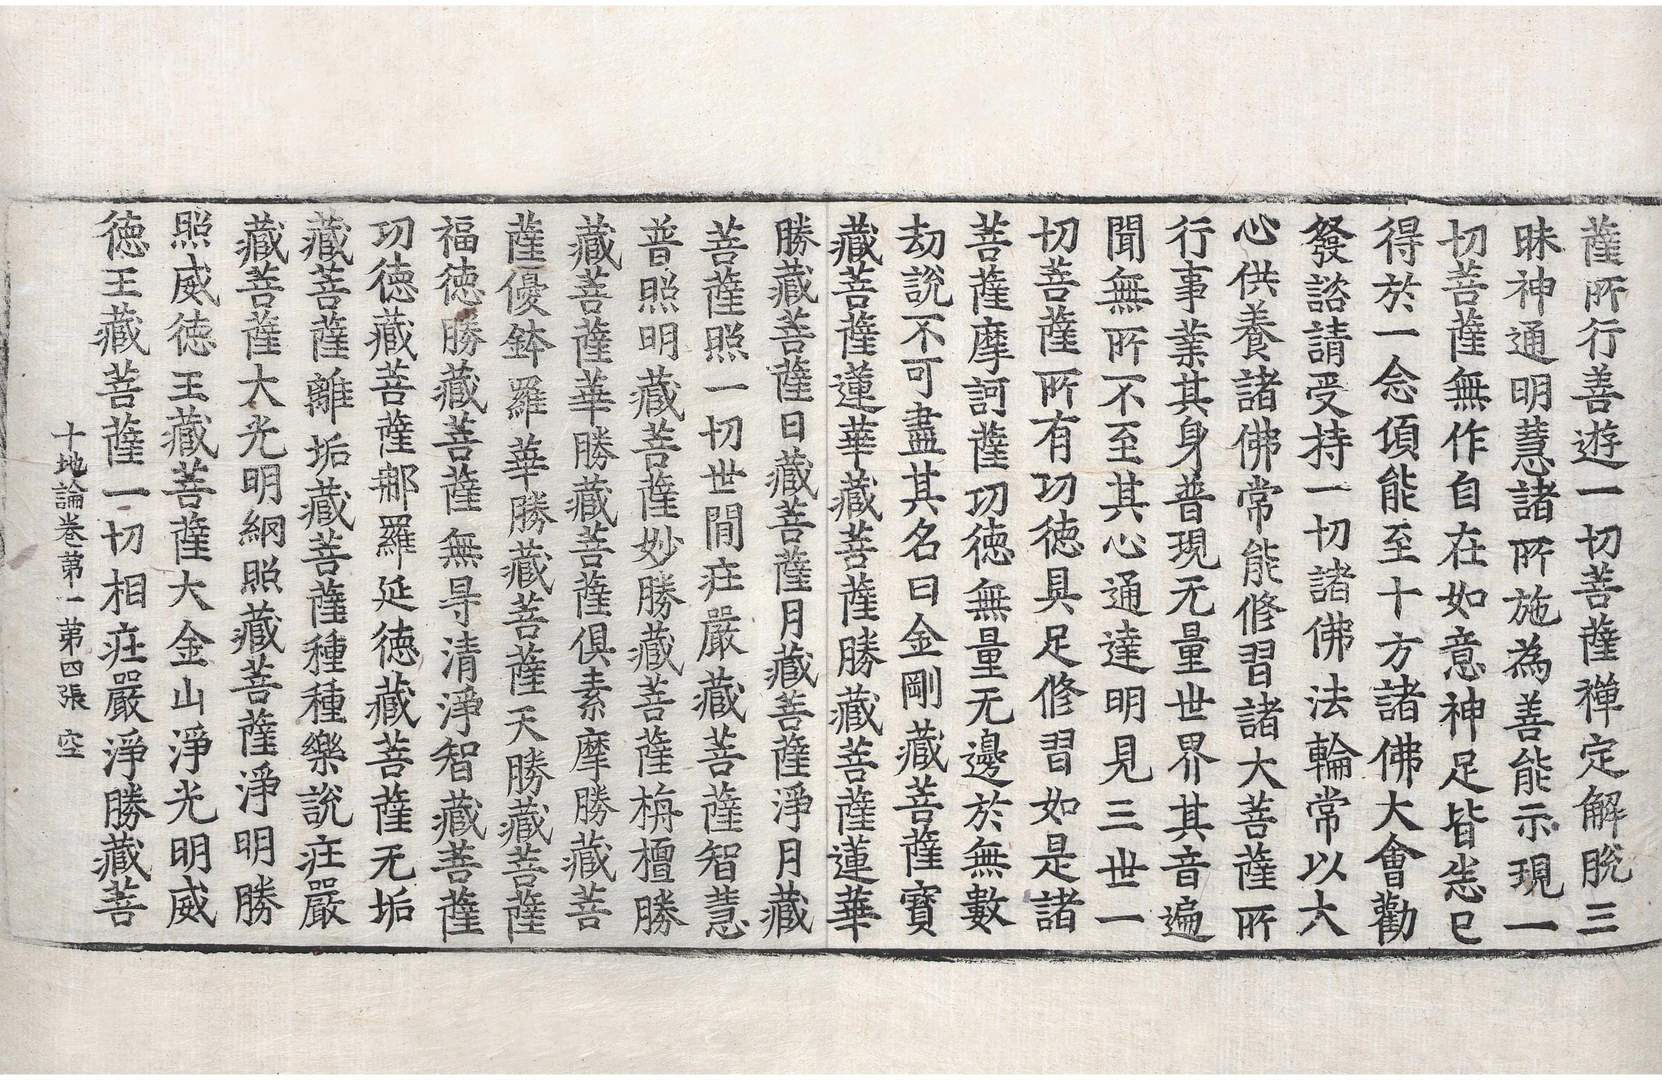 薩所行善遊一切菩薩禪定解脫三
昧神通明慧諸所施為善能示現一
切菩薩無作自在如意神足皆悉已
得於一念頃能至十方諸佛大會勸
發諮請受持一切諸佛法輪常以大
心供養諸佛常能修習諸大菩薩所
行事業其身普現无量世界其音遍
聞無所不至其心通達明見三世一
切菩薩所有功德具足修習如是諸
菩薩摩訶薩功德無量无邊於無數
劫說不可盡其名曰金剛藏菩薩寶
藏菩薩蓮華藏菩薩勝藏菩薩蓮華
勝藏菩薩日藏菩薩月藏菩薩淨月藏
菩薩照一切世間莊嚴藏菩薩智慧
普照明藏菩薩妙勝藏菩薩栴檀勝
藏菩薩華勝藏菩薩俱素摩勝藏菩
薩優鉢羅華勝藏菩薩天勝藏菩薩
福德勝藏菩薩無㝵清淨智藏菩薩
功德藏菩薩那羅延德藏菩薩无垢
藏菩薩離垢藏菩薩種種樂說莊嚴
藏菩薩大光明網照藏菩薩淨明勝
照威德王藏菩薩大金山淨光明威
德王藏菩薩一切相莊嚴淨勝藏菩
十地論卷第一 第四張 空